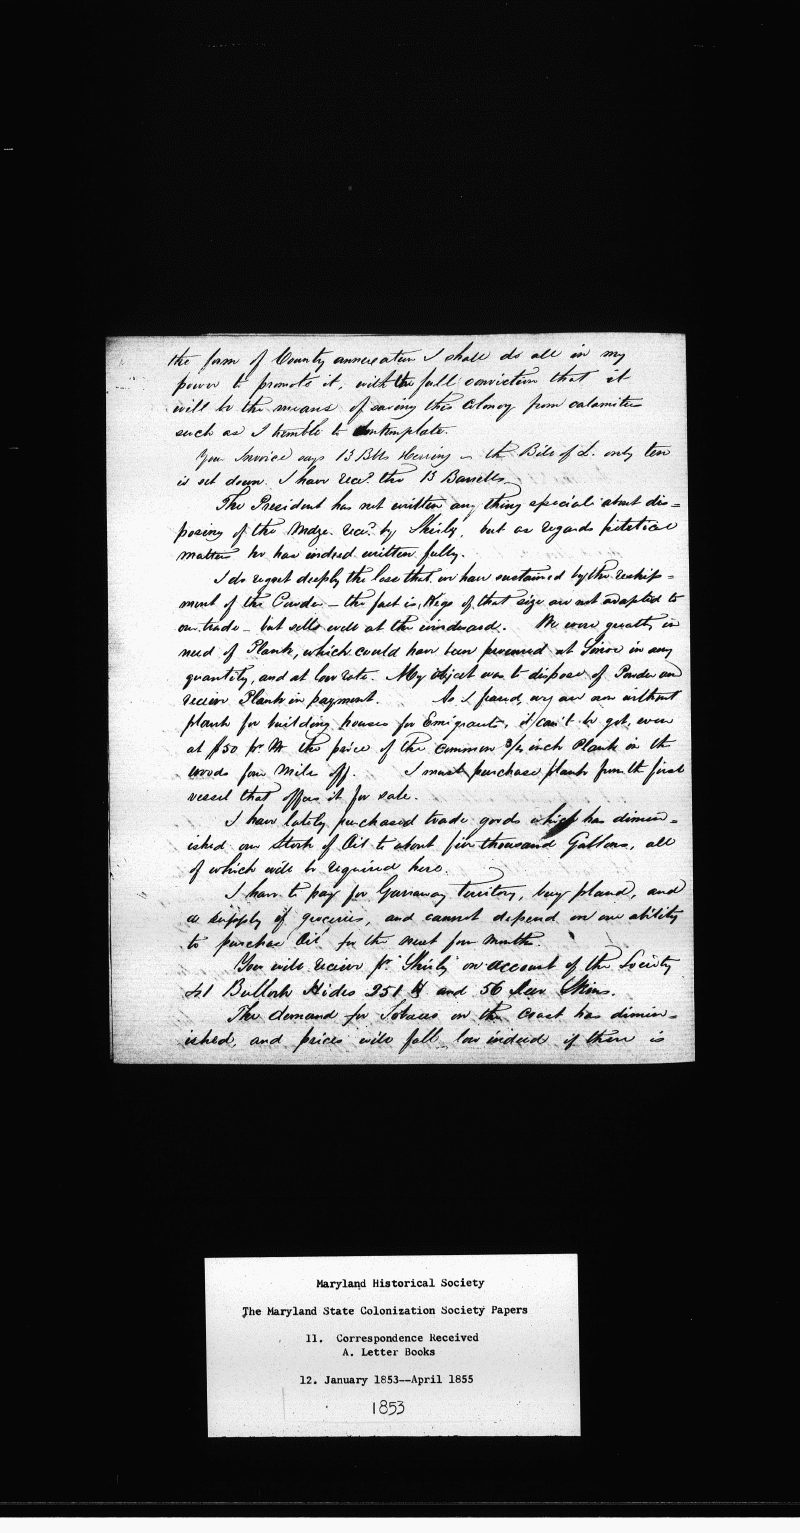 the form of County annexation I shall do all in my
power to promote it, with the full conviction that it
will be the means of saving this Colony from calamities
such as I tremble to contemplate.
Your Invoice says 13 Bbls Herring – the Bill of L. only ten
is set down. I have recd. the 13 Barrells.
The President has not written any thing special about dis=
posing of the Mdze. recd. by Shirly, but as regards political
matters he has indeed written fully.
I do regret deeply the loss that we have sustained by the reship=
ment of the Powder – the fact is, Kegs of that size are not adapted to
our trade – but sells well at the windward. We were greatly in
need of Plank, which could have been procured at Sinoe in any
quantity, and at low rate. My object was to dispose of Powder and
receive Plank in payment. As I feared we are now without
plank for building houses for Emigrants, it can't be got, even
at $50 pr. M the price of the common 3/4 inch Plank in the
woods four miles off. I must purchase plank from the first
vessel that offers it for sale.
I have lately purchased trade goods which has dimin=
ished our Stock of Oil to about five thousand Gallons, all
of which will be required here.
I have to pay for Garraway Territory, buy plank, and
a supply of groceries, and cannot depend on our ability
to purchase Oil for the next four months.
You will receive pr. "Shirly" on account of the Society
41 Bullock Hides 251 lb and 56 Skins.
The demand for Tobacco on the Coast has dimin=
ished, and prices will fall low indeed if there is
Maryland Historical Society
The Maryland State Colonization Society Papers
11. Correspondence Received
A. Letter Books
12. January 1853--April 1855
1853